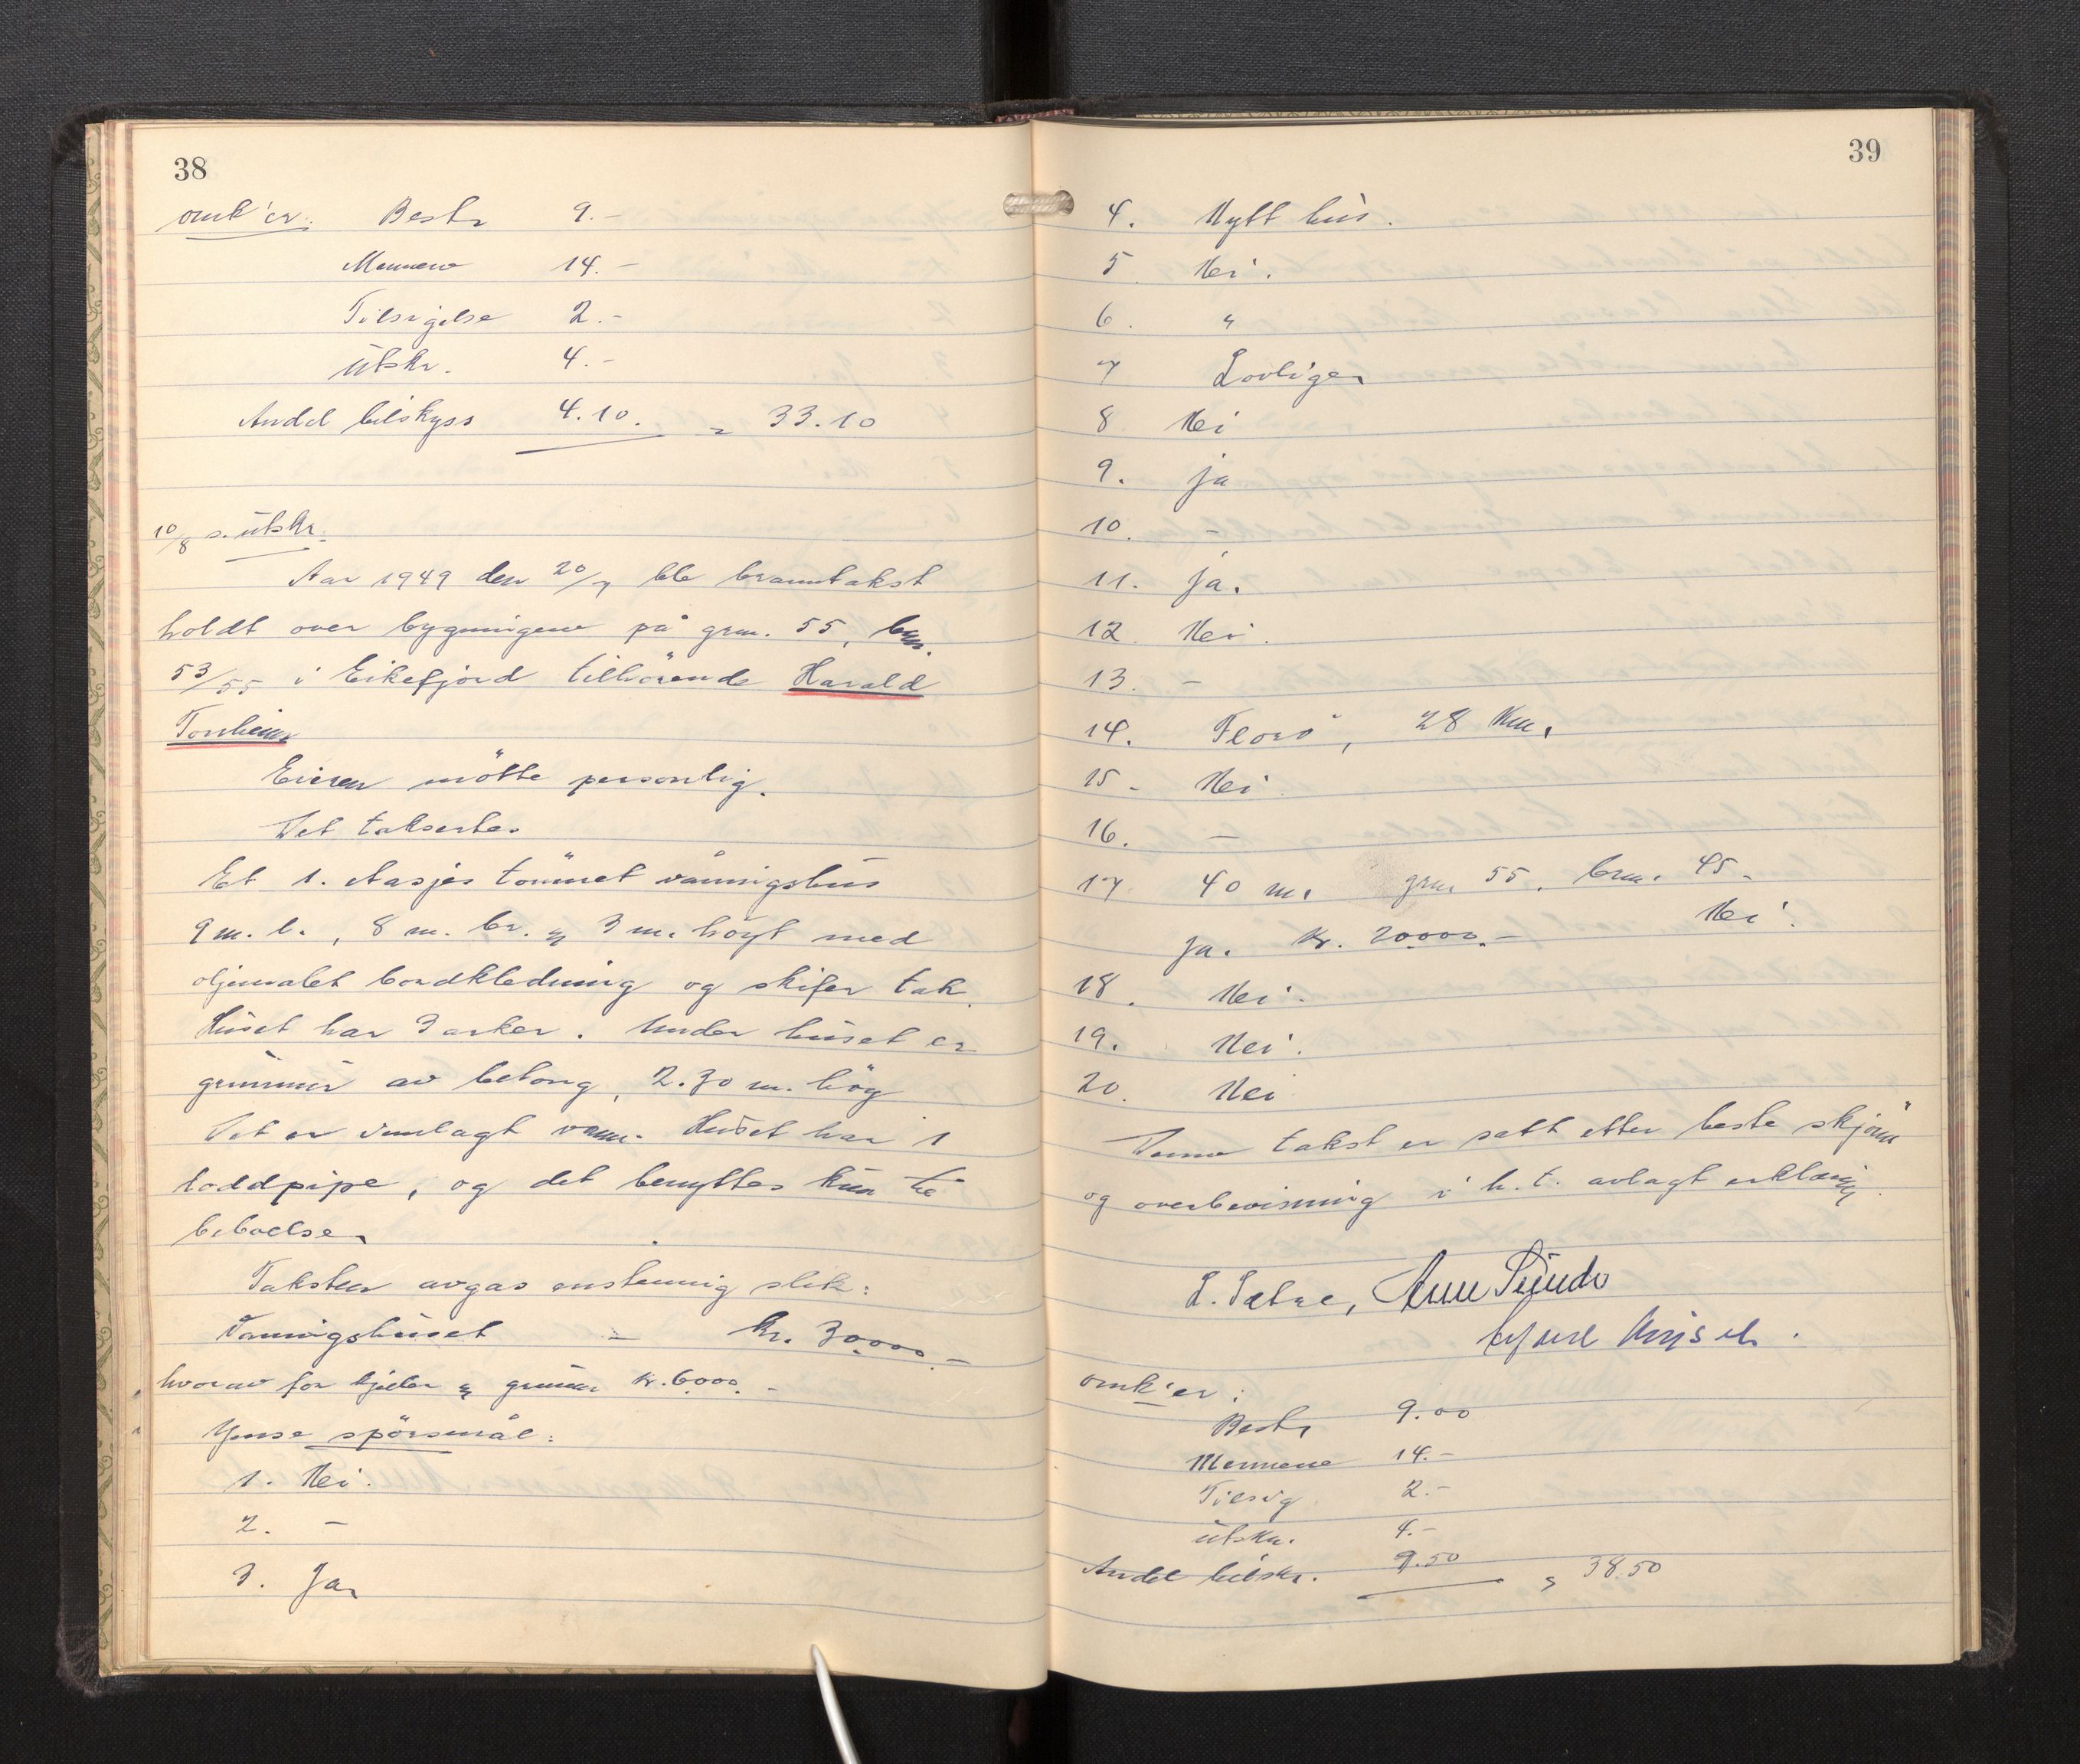 38
omk'er: Bestr 9.-
Mennene 14.-
Tilsigelse 2.-
Utskr. 4.-
Andel bilskyss 4.10. = 33.10
10/8 s. utskr.
Aar 1949 den 20/7 ble branntakst
holdt over bygningene på grn. 55, brn.
53/55 i Eikefjord tilhörende Harald
Tonheim
Eieren mötte personlig.
Det taksertes
Et 1. etasjes tömret våningshus
9 m. l., 8 m. br. og 3 m. höyt med
oljemalet bordkledning og skifer tak.
Huset har 3 arker. Under huset er
grunmur av betong, 2.30 m. hög
Det er innlagt vann. Huset har 1
loddpipe, og det benyttes kun til
beboelse.
Taksten avgas enstemmig slik:
Våningshuset - kr. 30000.-
hvorav for kjeller og grunmur kr. 6000.-
Ymse spörsmål:
1. Nei.
2. -
3. Ja.
39
4. Nytt hus.
5 Nei.
6. "
7 Lovlige.
8 Nei
9. ja
10. -
11. ja.
12. Nei.
13. -
14. Florö, 28 km.
15 - Nei
16. -
17 40 m. grn 55, brn. 45.
Nei.
ja. kr. 20000.-
18. Nei.
19. Nei.
20. Nei
Denne takst er satt etter beste skjönn
og overbevisning i h. t. avlagt erklæring.
L. Sætre,
omk'er:
Bestr 9.00
Mennene 14.-
Tilsig 2.-
utskr. 4.-
Andel bilskr. 9.50 = 38.50